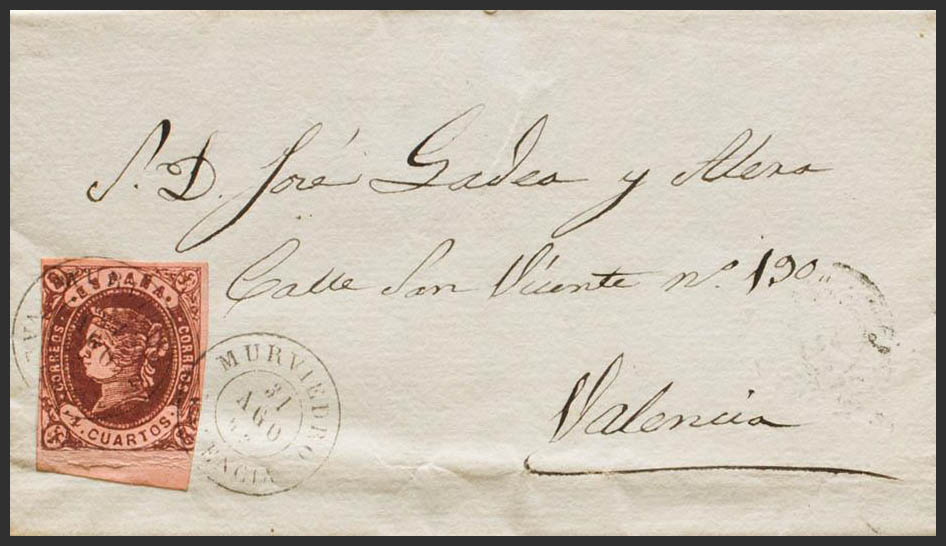 S. D. José Gadea y Alera
Calle San Vicente nº 190.
Valencia
ESPAÑA
CORREOS
CORREOS
4 CUARTOS
MURVIEDRO
31
AGO